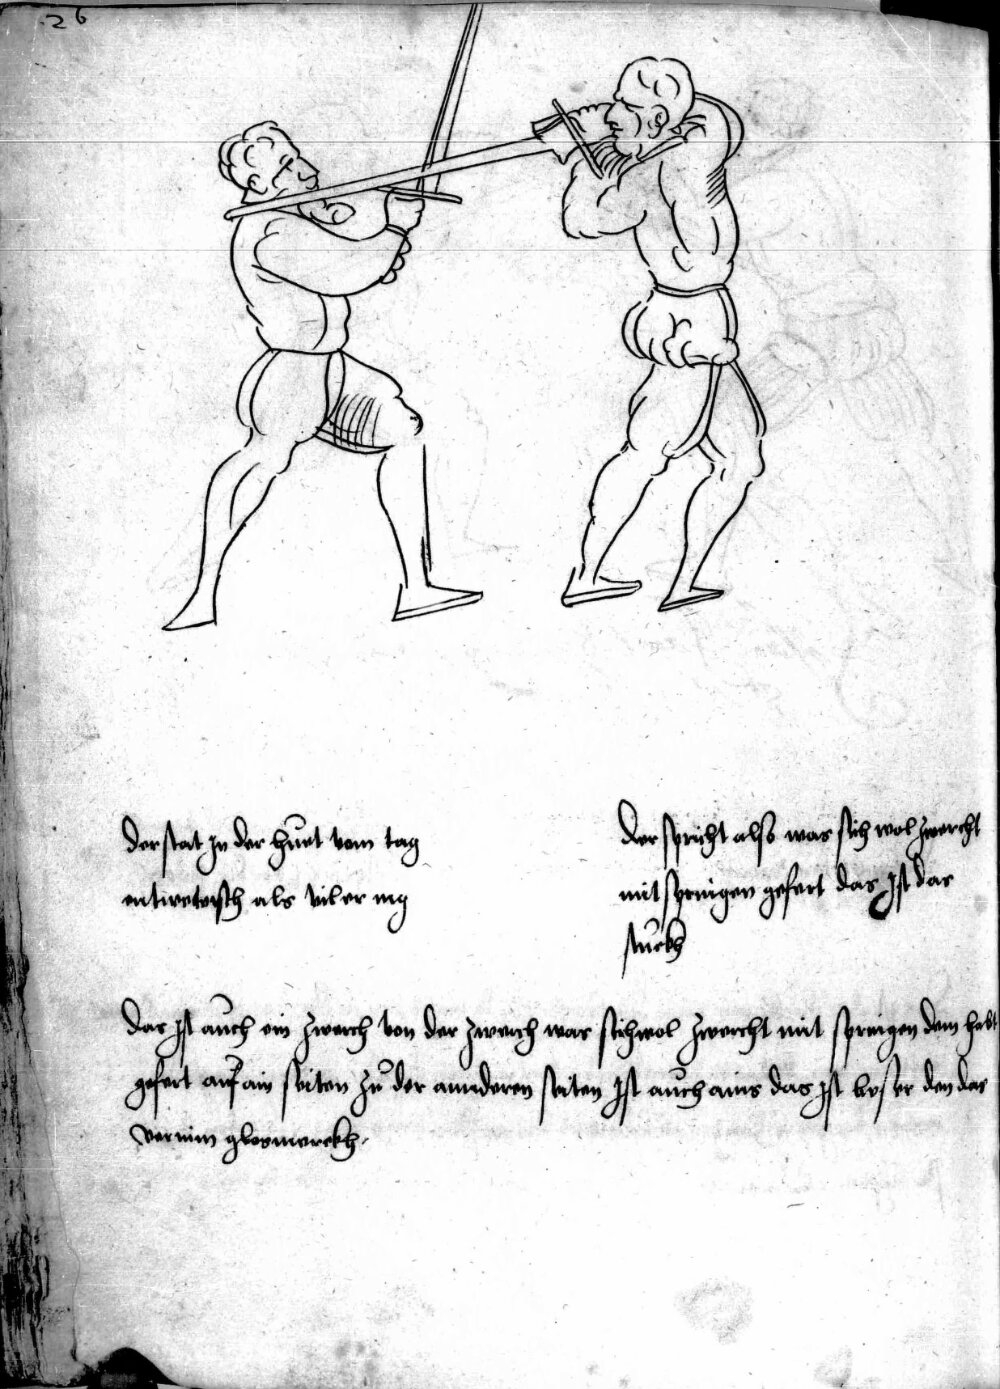 26
der stat In der huet vom tag
entwetvisch als vil er mg
der spricht also was sich wol zwercht
mit springen gefert das Ist das
stuckh
das Ist auch ein zwerch von der zwerch was sich wol zwercht mit springen dem
gefert auf ain seiten zu der annderen seiten Ist auch ains das Ist den das
vernim glosmerckh